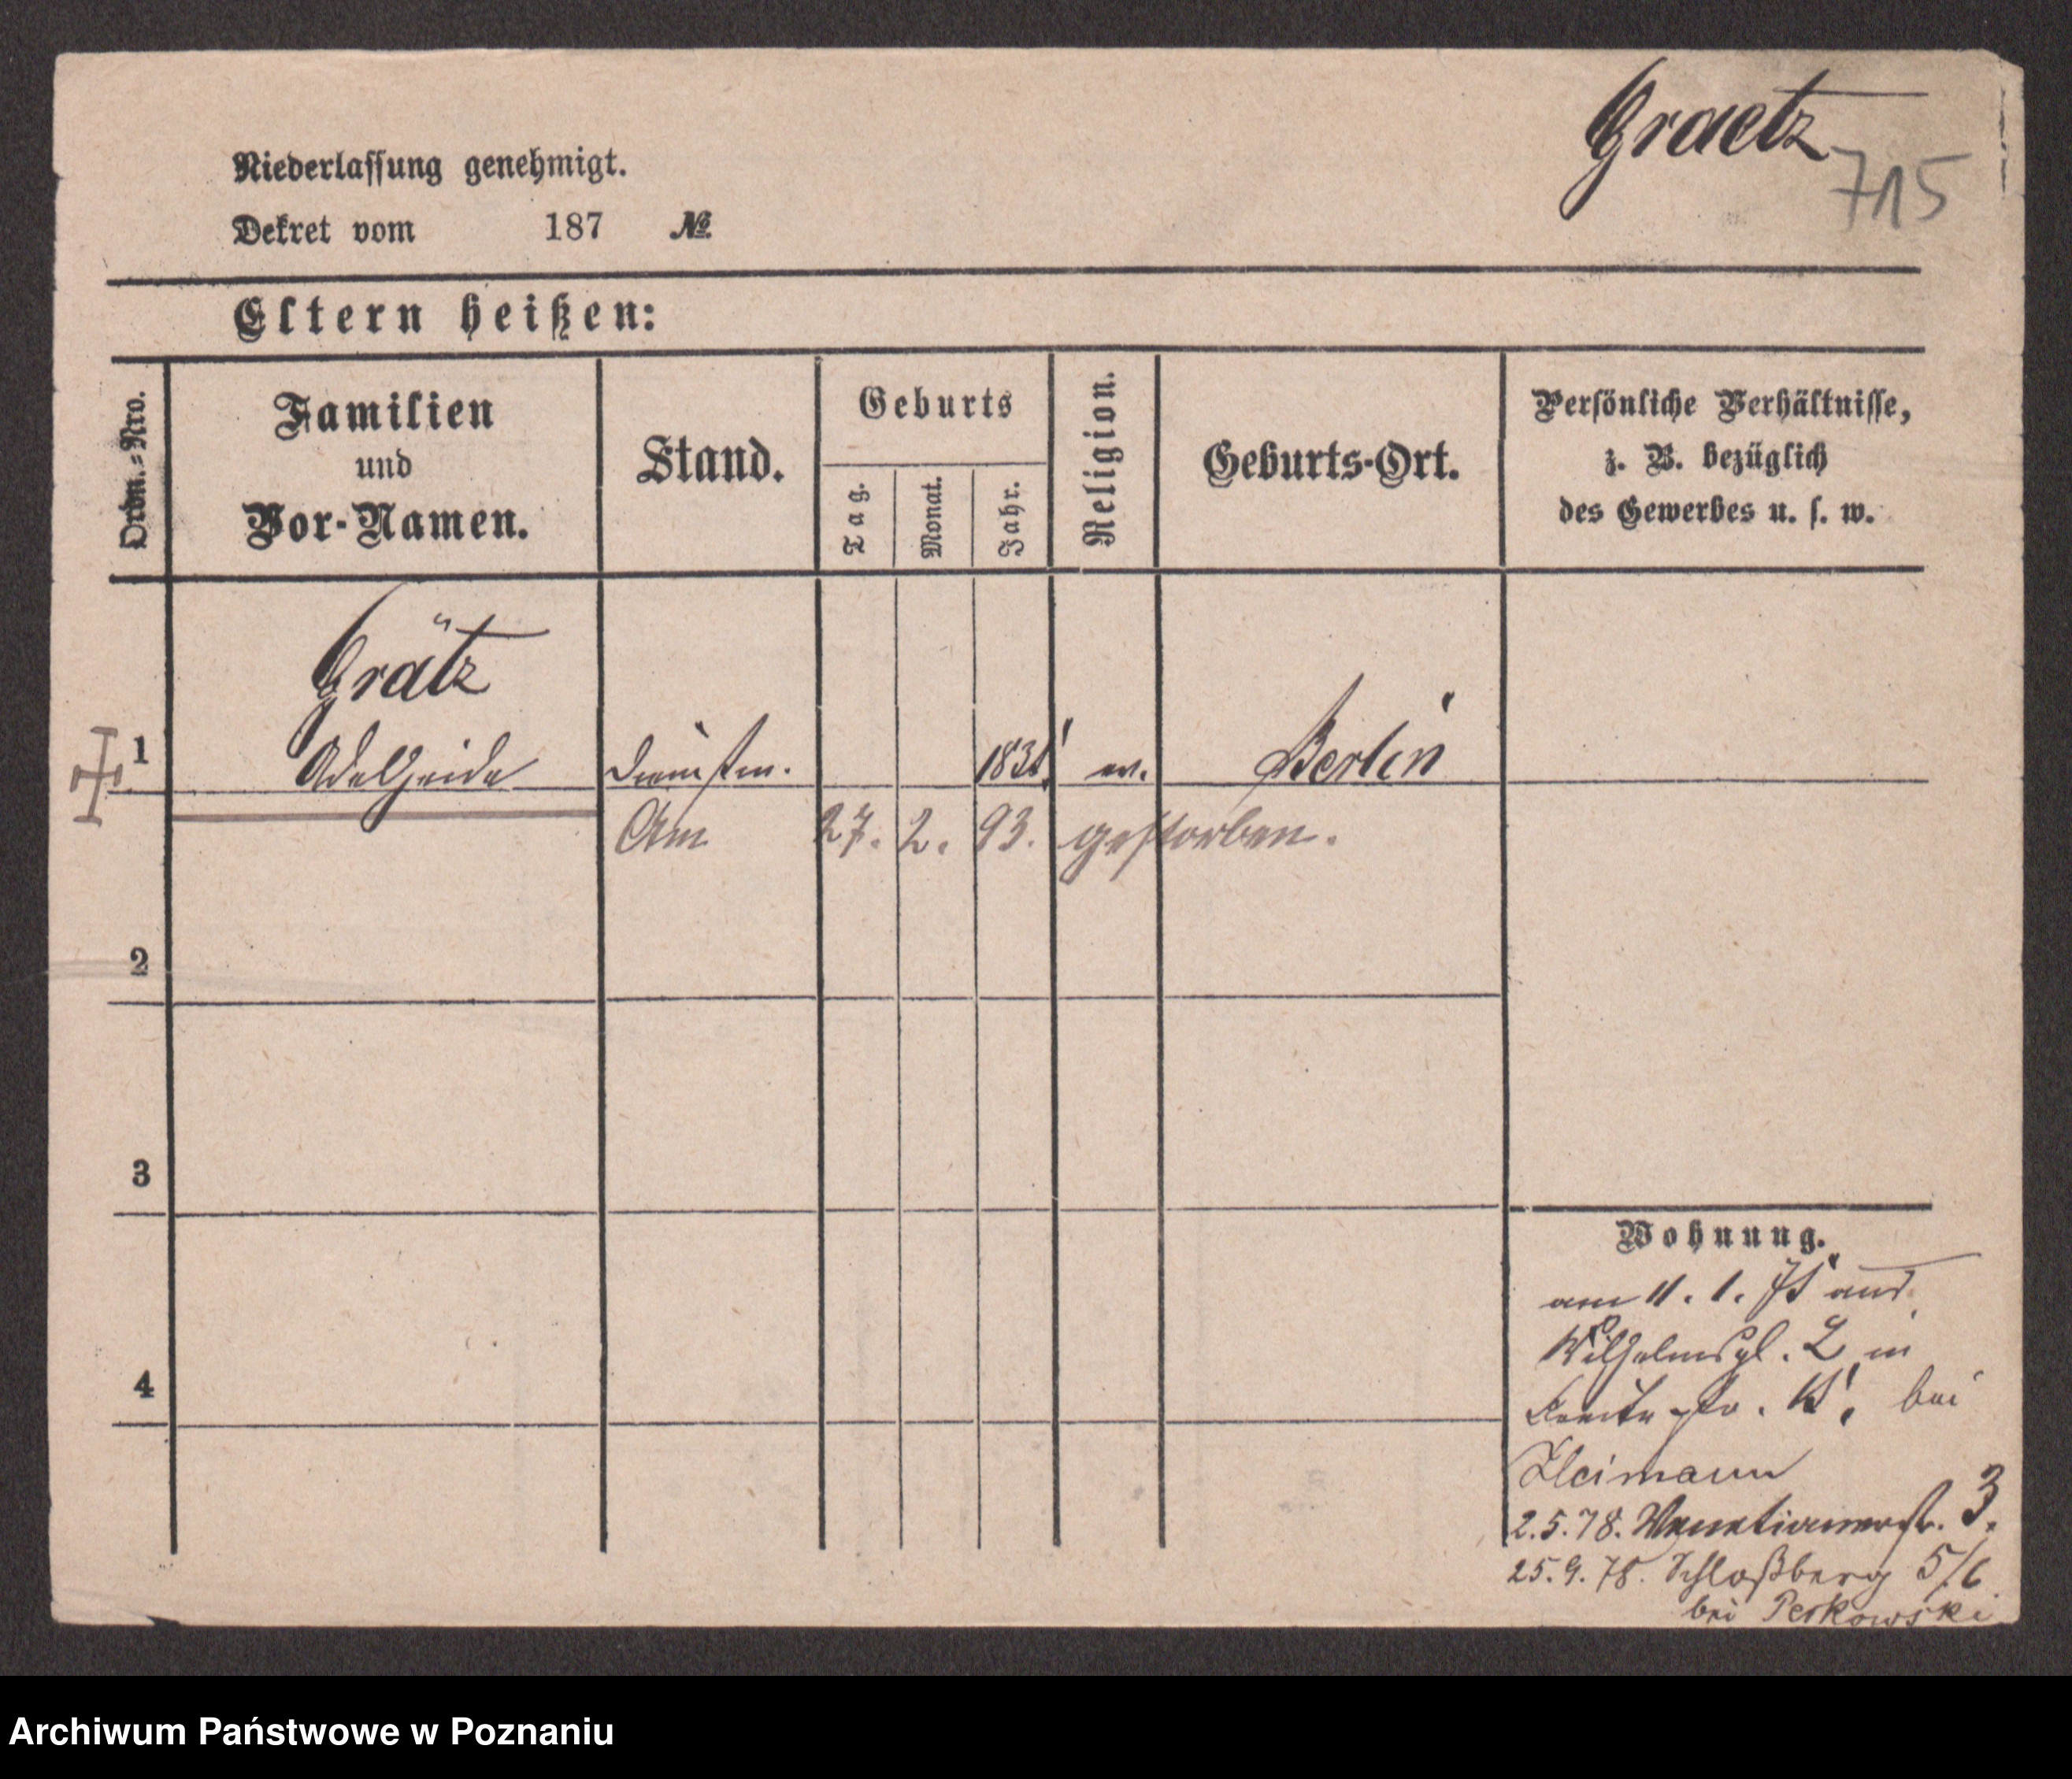 Graetz
715
Niederlassung genehmigt.
Dekret vom 187 №
Eltern heißen:
Ordn.-Nro.
Familien
und
Vor-Namen.
Stand.
Geburts
Tag.
Monat.
Jahr.
Religion.
Geburts-Ort.
Persönliche Verhältnisse,
z. B. bezüglich
des Gewerbes u. s. w.
Grätz
1 Adelheide ev. Berlin
Am 27. 2. 93. gestorben.
2
3
4
Wohnung.
am 11. 1.
Wilhelmspl. 2 in
bei
Heimann
2.5.78. Venetianerstr. 3.
25.9.78. Schloßberg 5/6
bei Perkowski
Archiwum Państwowe w Poznaniu